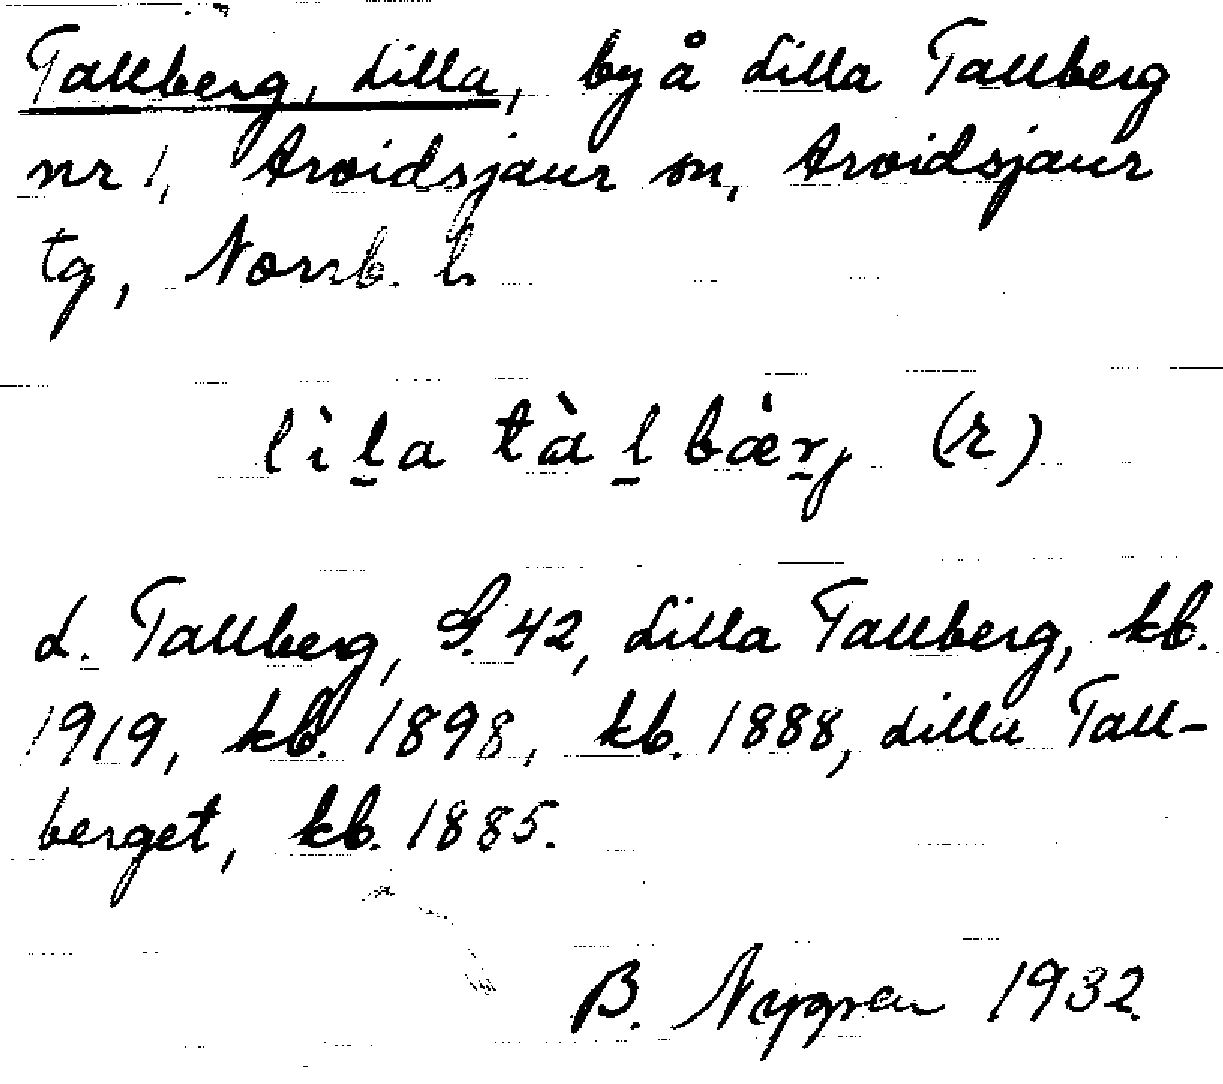 Tallberg, Lilla, by å Lilla Tallberg
nr 1, Arvidsjaur sn, Arvidsjaur
tg, Norrb. l.
lìl̠a tàl̠bæ̀r̠j (r)
L. Tallberg, S. 42, Lilla Tallberg, kb.
1919, kb. 1898, kb. 1888, Lilla Tall-
berget, kb. 1885.
B. Nygren 1932.